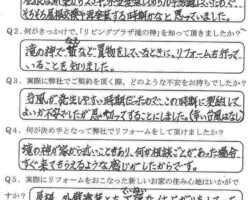 そろそろ屋根交換や塗り替えする時期かなと思っていました。
Q2. 何がきっかけで、「リビングプラザ滝の神」を知って頂きましたか?
滝の神で買物をしているときに、リフォームを行って
いることを知りました。
Q3. 実際に弊社でご契約を頂く際、どのような不安をお持ちでしたか?
台風が発生しやすい時期だったため、この時期に契約して
よいか不安でしたが思い切ってすることにしました。(幸い台風はなし)
Q4. 何が決め手となって弊社でリフォームをして頂けましたか?
滝の神が家から近いこともあり、何か相談ごとがあった場合
すぐ来てもらえるような感じがしたからです。
Q5. 実際にリフォームをおこなった新しいお家の住み心地はいかがで
すか?